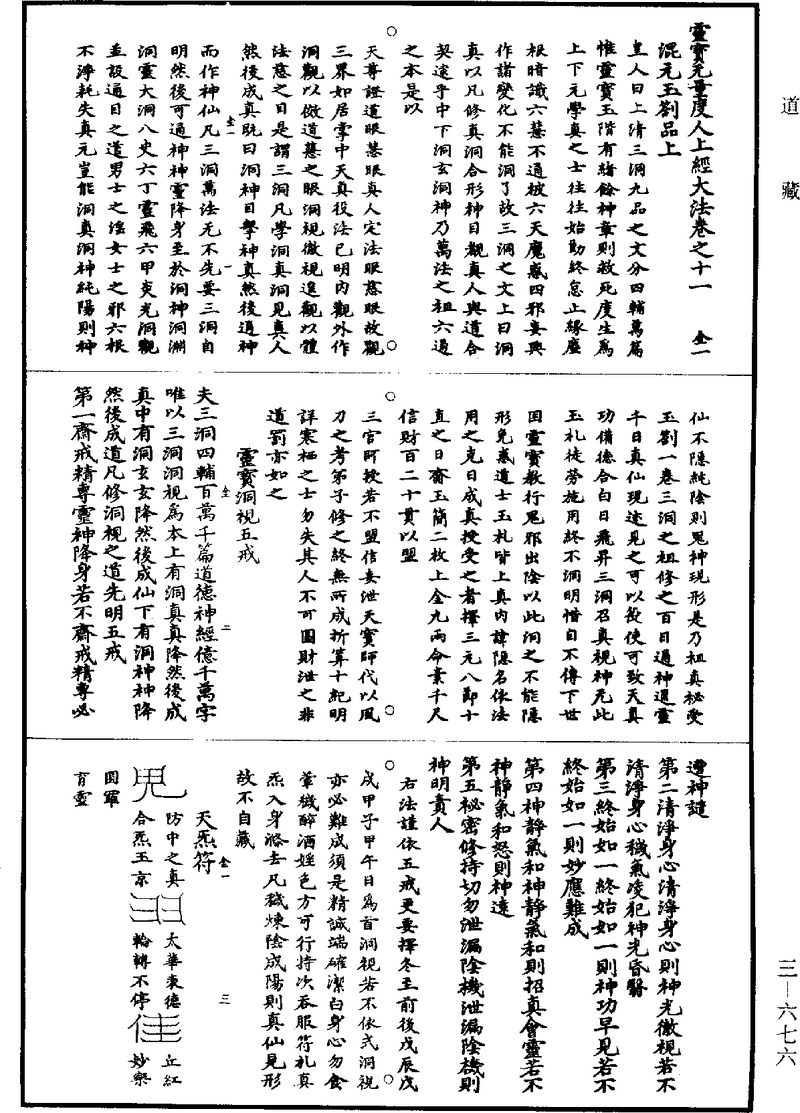 道藏
靈寶无量度人上經大法卷之十一　全一
混元玉劄品上
皇人曰上清三洞九品之文分四輔萬篇
惟靈寶玉階有緒餘神章則救死度生爲
上下元學真之士往往始勤終怠止緣塵
根暗識六慧不通被六天魔惑四邪妄興
作諸變化不能洞了故三洞之文上曰洞
真以凡修真洞合形神目觀真人與道合
契遠乎中下洞玄洞神乃萬法之祖六通
之本是以
天尊證道眼慧眼真人定法眼慈眼故觀
三界如居掌中天真役法已明內觀外作
洞觀以倣道慧之眼洞視徹視進觀以體
法慈之目是謂三洞凡學洞真洞見真人
然後成真既曰洞神目擊神真然後通神
而作神仙凡三洞萬法无不先要三洞自
明然後可通神神靈降身至於洞神洞淵
洞靈大洞八史六丁靈飛六甲奕光洞觀
並設通目之道男士之淫女士之邪六根
不淨耗失真元豈能洞真洞神純陽則神
仙不隱純陰則鬼神現形是乃祖真秘受
玉劄一卷三洞之祖修之百日通神通靈
千日真仙現遠見之可以役使可致天真
功備德合白日飛昇三洞召真視神无此
玉札徒勞施用終不洞明惜自不傳下世
因靈寶教行鬼邪出陰以此洞之不能隱
形免惑道士玉札皆上真內諱隱名依法
用之克日成真授受之者擇三元八節十
直之日齋玉簡二枚上金九兩命素千尺
信財百二十貫以盟
三官阿授若不盟信妄泄天寶師代以風
刀之考弟子修之終無所成折算十紀明
詳案栖之士勿失其人不可圖財泄之非
道罰亦如之
靈寶洞視五戒
夫三洞四輔百萬千篇道德神經億千萬字
唯以三洞洞視爲本上有洞真真降然後成
真中有洞玄玄降然後成仙下有洞神神降
然後成道凡修洞視之道先明五戒
第一齋戒精專靈神降身若不齋戒精專必
遭神譴
第二清淨身心清淨身心則神光徹視若不
清淨身心穢氣凌犯神光昏翳
第三終始如一終始如一則神功早見若不
終始如一則妙應難成
第四神靜氣和神靜氣和則招真會靈若不
神靜氣和怒則神遠
第五秘密修持切勿泄漏陰機泄漏陰機則
神明責人
右法謹依五戒更要擇冬至前後戊辰戊
戌甲子甲午日爲首洞視若不依式洞視
亦必難成須是精誠端確潔白身心勿食
葷穢醉酒婬色方可行持次吞服符札真
炁入身滌去凡穢煉陰成陽則真仙見形
故不自藏
天炁符
防中之真
合炁玉京
太華東德
輪轉不停
丘紅
妙樂
圓羅
育靈
三—六七六